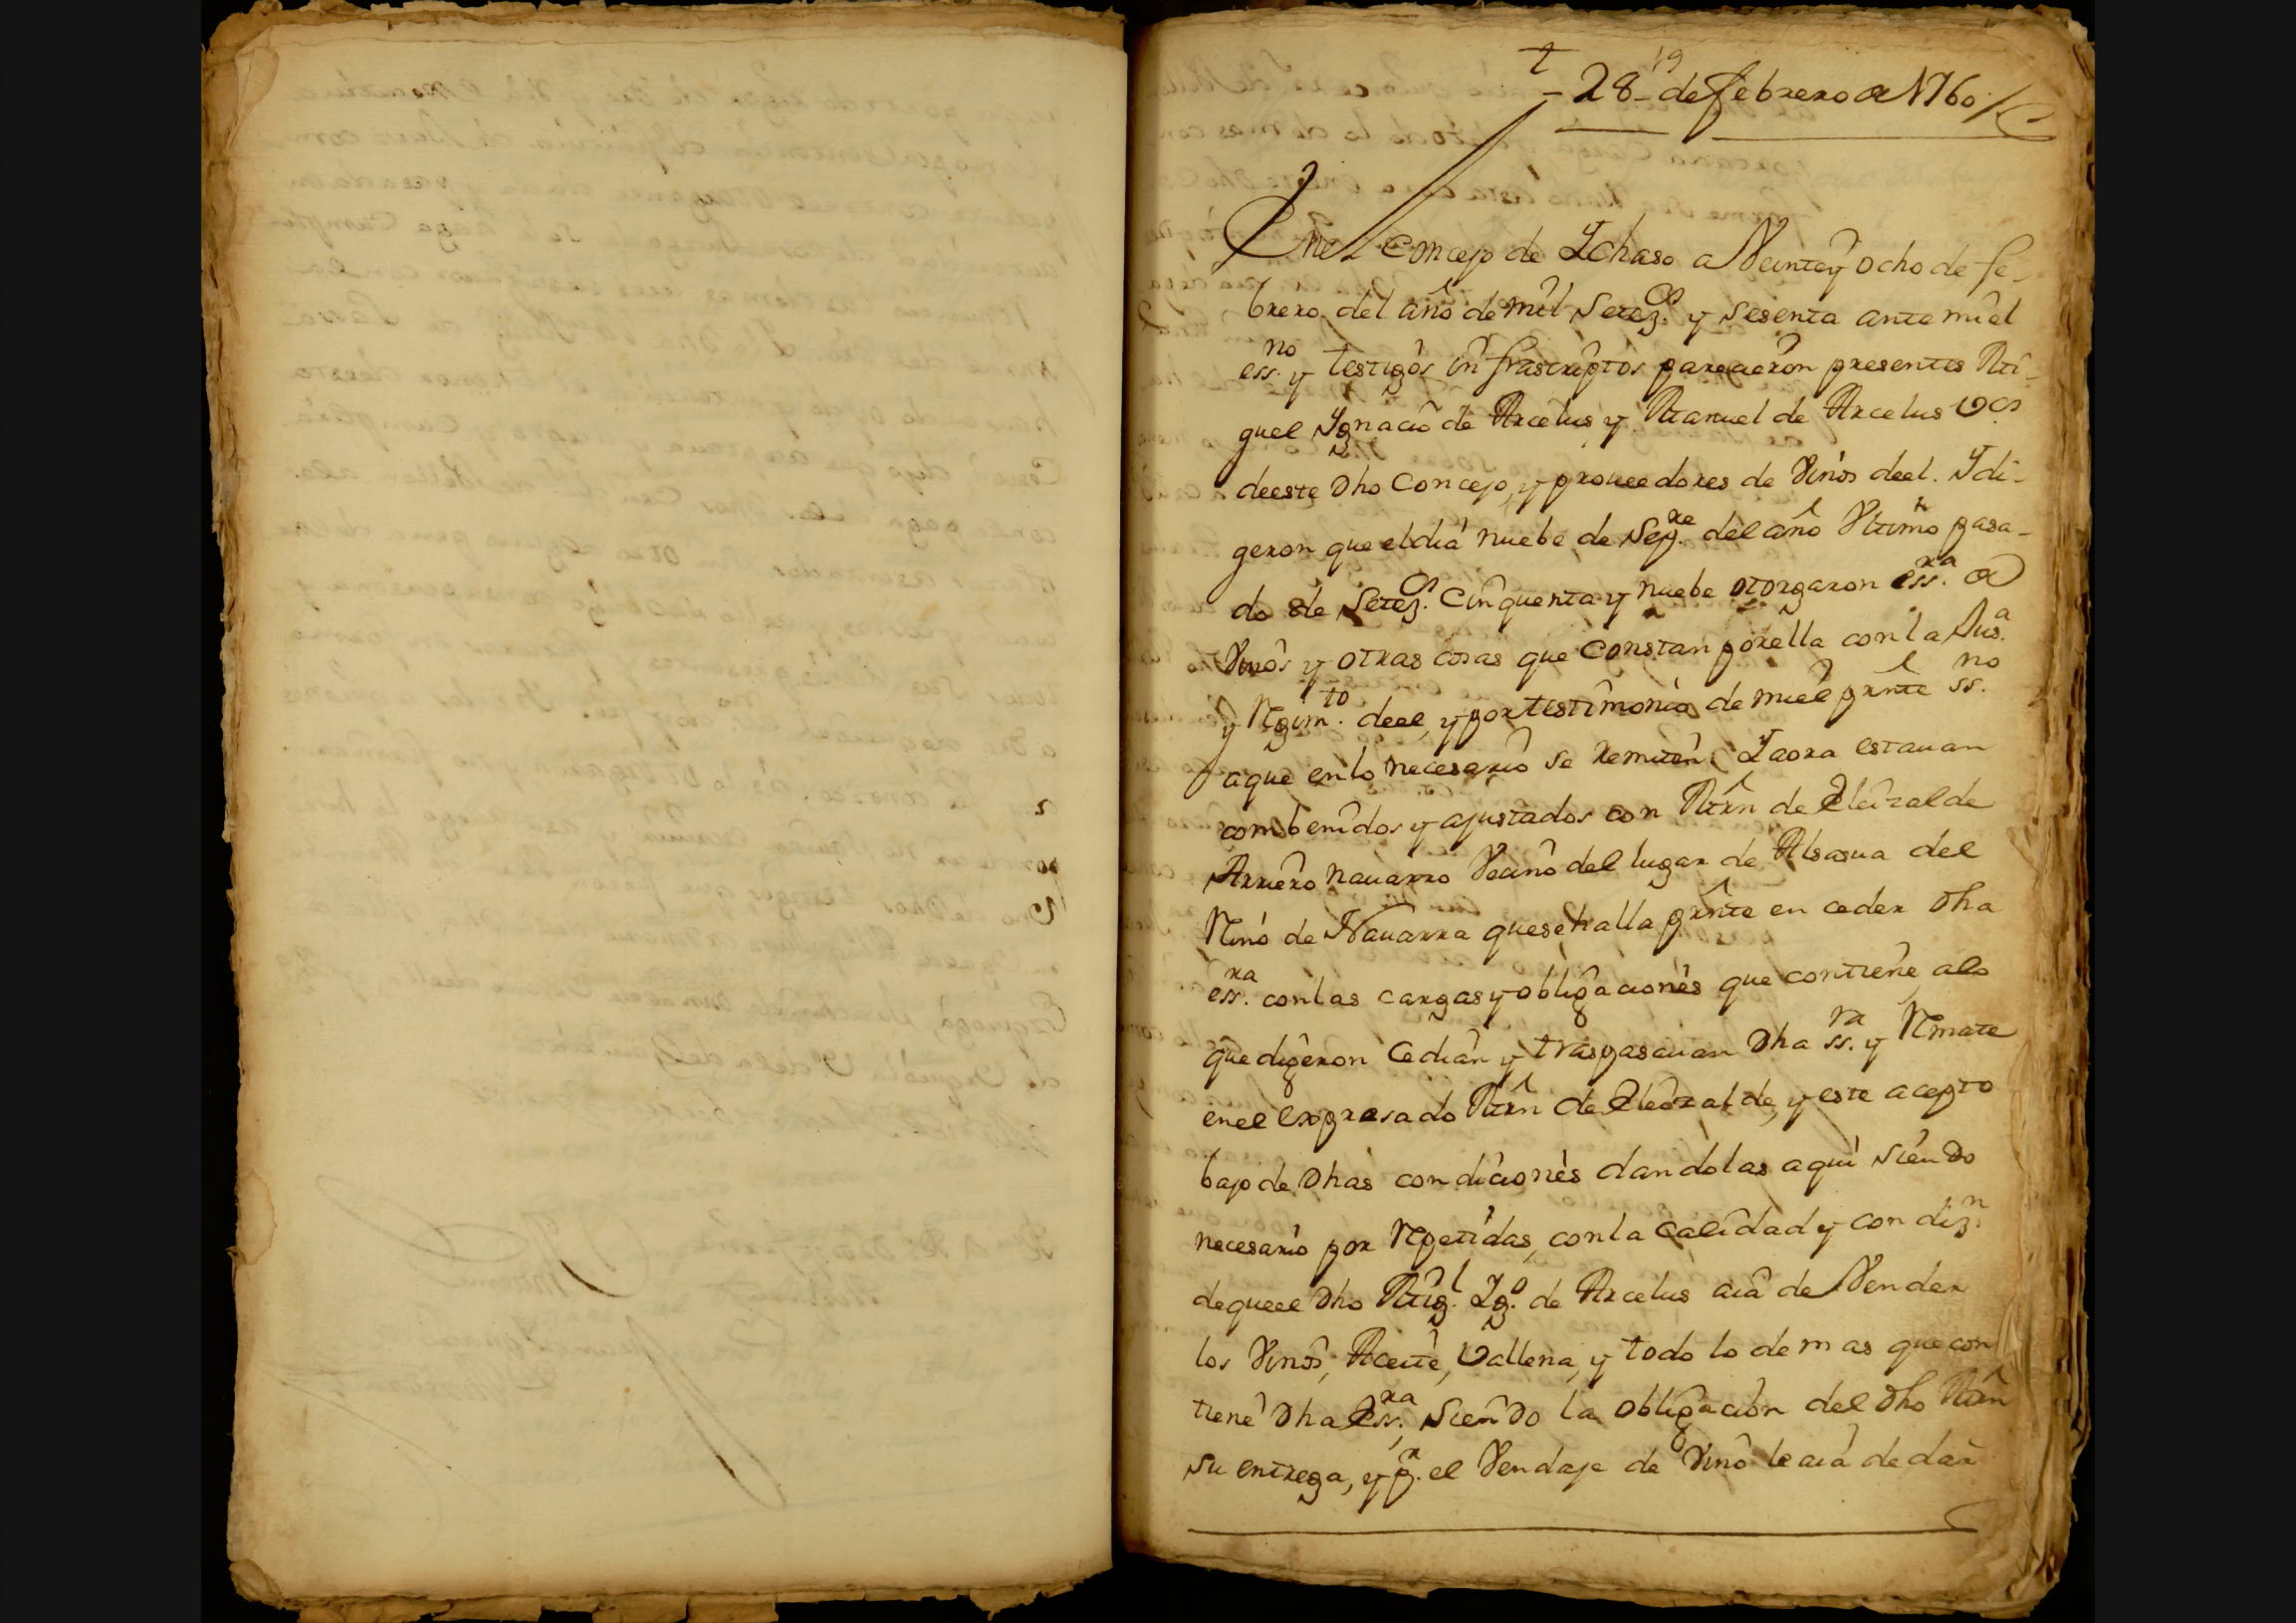 t
19
28 de febrero de 1760
En el Concejo de Ychaso a Veinte y ocho de fe-
brero del año de mil Setez.os y Sesenta ante mi el
ess.no y testigos infrascriptos parecieron presentes Mi-
guel Ygnacio de Arcelus y Manuel de Arcelus V.os
de este dho Concejo, y proueedores de Vinos de el. Y di-
geron que el dia nuebe de Sep.re del año Vltimo pasa-
do de Setez.os Cinquenta y nuebe otorgaron ess.ra de
Vinos y otras cosas que Constan por ella con la Jus.a
y Regim.to de el, y por testimonio de mi el prnte ss.no
a que en lo necesario se remiten, Y aora estauan
combenidos y ajustados con Mrn de Eleizalde
Arriero nauarro Vecino del lugar de Alsasua del
Reino de Nauarra que se halla prnte en ceder dha
ess.ra con las cargas y obligaciones que contiene, a lo
que digeron Cedian y traspasauan dha ss.ra y Rmate
en el expresado Mrn de Eleizalde, y este acepto
bajo de dhas condiciones dandolas aqui siendo
necesario por Repetidas, con la calidad y condiz.n
de que el dho Mig.l Yg.o de Arcelus aia de Vender
los Vinos, Aceite, Vallena, y todo lo demas que con
tiene dha Ess.ra, siendo la obligacion del dho Mrn
su entrega, y p.r el Vendaje de Vino le aia de dar